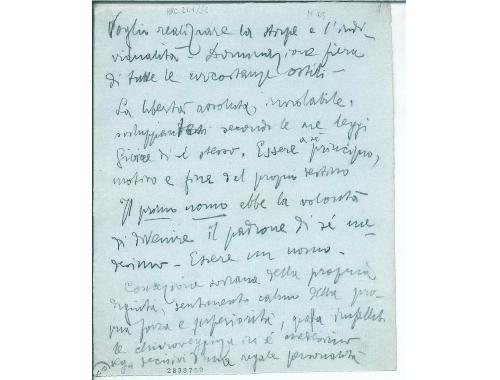 Voglio realizzare la stirpe e l'indi-
vidualità - Dominazione fiera
di tutte le circostanze ostili -
La libertà assoluta, inviolabile,
sviluppantesi secondo le sue leggi
di sé stesso. Essere a sé principio,
motivo e fine del proprio destino
Il primo uomo ebbe la volontà
di divenire il padrone di sé me-
desimo - Essere un uomo -
Concezione sovrana della propria
dignità, sentimento calmo della pro-
pria forza e superiorità, quasi
chiaroveggenza in sé medesimo
decisivi d'una regale personalità
2838753